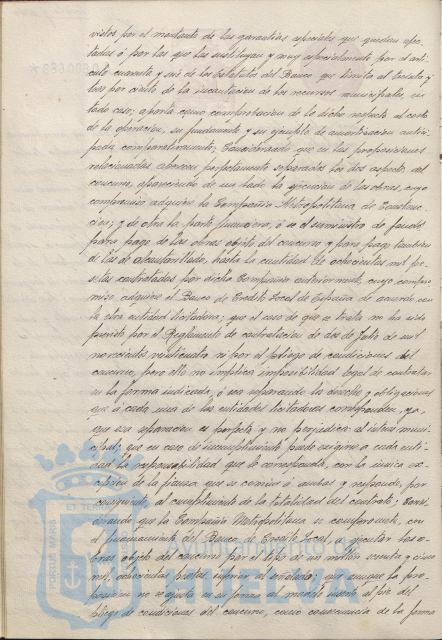 vistos por el montante de las garantías especiales que queden afec-
tadas ó por las que las sustituyan y muy especialmente por el artí-
culo cuarenta y seis de los Estatutos del Banco que limita al treinta y
tres por ciento de la incautación de los recursos municipales, en
todo caso; aparte como comprobación de lo dicho respecto al costo
de la operación, su fundamento y su ejemplo de amortización antici-
pada comparativamente; Considerando que en las proposiciones
relacionadas aborean perfectamente separados los dos aspectos del
concurso, apareciendo de un lado la ejecución de las obras, cuyo
compromiso adquiere la Compañía Metropolitana de Construc-
ción; y de otro la parte financiera, ó sea el suministro de fondos
para pago de las obras objeto del concurso y para pago tambien
de las de alcantarillado, hasta la cantidad de ochocientas mil pe-
setas contratadas por dicha Compañía anteriormente, cuyo compro-
miso adquiere el Banco de Crédito Local de España de acuerdo con
la otra entidad licitadora; que el caso de que se trata no ha sido
previsto por el Reglamento de contratación de dos de Julio de mil
novecientos veinticuatro ni por el pliego de condiciones del
concurso, pero ello no implica imposibilidad legal de contratar
en la forma indicada, ó sea separando los derechos y obligaciones
que á cada una de las entidades licitadoras correspondan, ya
que esa separación es perfecta y no perjudica al interés muni-
cipal; que en caso de incumplimiento puede exigirse a cada enti-
dad la responsabilidad que le corresponda, con la única ex-
cepción de la fianza que es común á ambas y responde, por
consiguiente, al cumplimiento de la totalidad del contrato; Consi-
derando que la Compañía Metropolitana se compromete, con
el financiamiento del Banco de Crédito Local, a ejecutar las o-
bras objeto del concurso por el tipo de un millón sesenta y cinco
mil ochocientas pesetas, inferior al señalado; que aunque la pro-
posición no se ajusta en su forma al modelo inserto al pie del
pliego de condiciones del concurso, como consecuencia de la forma
PORTUS MARIS
ET TERRÆ